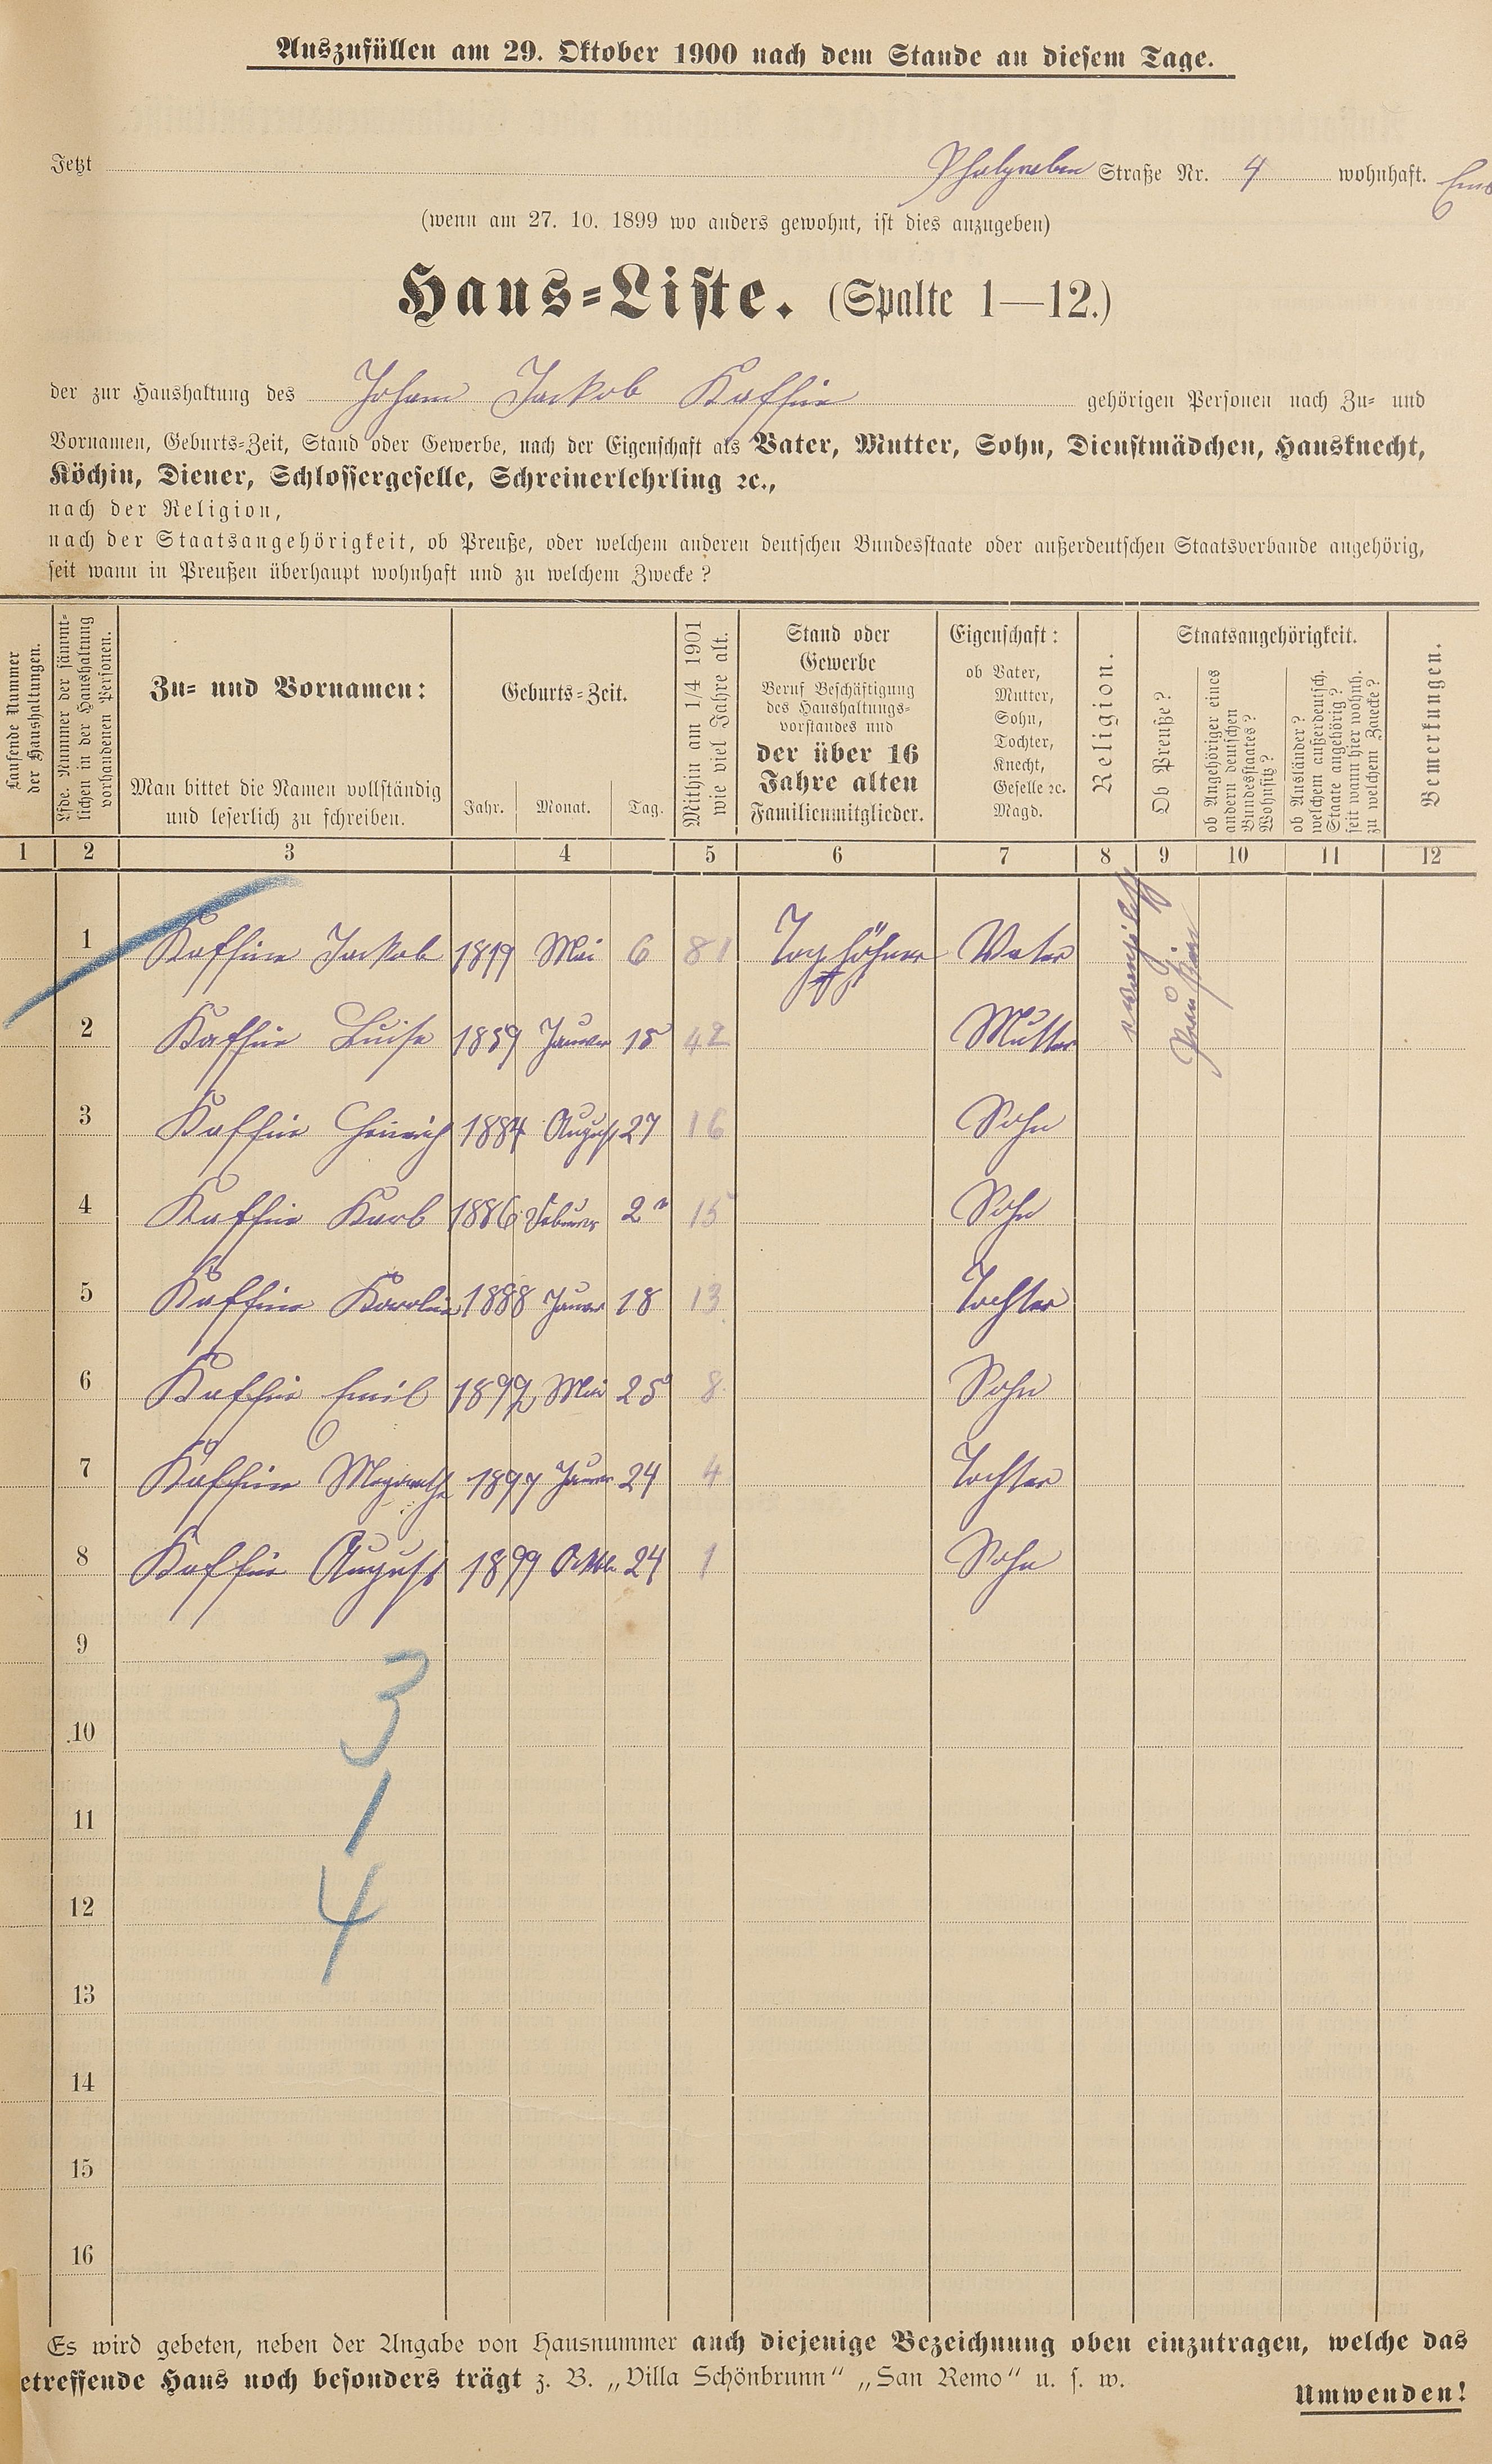 Auszufüllen am 29. Oktober 1900 nach dem Stande an diesem Tage.
Jetzt Straße Nr. 4 wohnhaft. Ems
(wenn am 27. 10. 1899 wo anders gewohnt, ist dies anzugeben)
Haus-Liste. (Spalte 1—12.)
der zur Haushaltung des Johann Jackob Kaffine gehörigen Personen nach Zu- und
Vornamen, Geburts-Zeit, Stand oder Gewerbe, nach der Eigenschaft als Vater, Mutter, Sohn, Dienstmädchen, Hausknecht,
Köchin, Diener, Schlossergeselle, Schreinerlehrling ꝛc.,
nach der Religion,
nach der Staatsangehörigkeit, ob Preuße, oder welchem anderen deutschen Bundesstaate oder außerdeutschen Staatsverbande angehörig,
seit wann in Preußen überhaupt wohnhaft und zu welchem Zwecke?
Laufende Nummer der Haushaltungen.
Lfde. Nummer der sämmt-lichen in der Haushaltung vorhandenen Personen.
Zu- und Vornamen:
Man bittet die Namen vollständig
und leserlich zu schreiben.
Geburts-Zeit.
Jahr. Monat. Tag.
Mithin am 1/4 1901 wie viel Jahre alt.
Stand oder
Gewerbe
Beruf Beschäftigung
des Haushaltungs-
vorstandes und
der über 16
Jahre alten
Familienmitglieder.
Eigenschaft:
ob Vater,
Mutter,
Sohn,
Tochter,
Knecht,
Geselle ꝛc.
Magd.
Religion.
Staatsangehörigkeit.
Ob Preuße?
ob Angehöriger eines andern deutschen Bundesstaates? Wohnsitz?
ob Ausländer? welchem außerdeutsch. Staate angehörig? seit wann hier wohnh. zu welchem Zwecke?
Bemerkungen.
1 2 3 4 5 6 7 8 9 10 11 12
1 Kaffine Jackob 1819 Mai 6 81 Taglöhner Vater
2 Kaffine Luise 1859 Januar 15 42 Mutter
3 Kaffine Heinrich 1884 August 27 16 Sohn
4 Kaffine Karl 1886 Februar 2 15 Sohn
5 Kaffine Karolin 1888 Januar 18 13 Tochter
6 Kaffine Emil 1892 Mai 25 8 Sohn
7 Kaffine 1897 Januar 24 4 Tochter
8 Kaffine August 1899 24 1 Sohn
9
3
10
11
1
12
4
13
14
15
16
Es wird gebeten, neben der Angabe von Hausnummer auch diejenige Bezeichnung oben einzutragen, welche das
etreffende Haus noch besonders trägt z. B. „Villa Schönbrunn“ „San Remo“ u. s. w.
Umwenden!